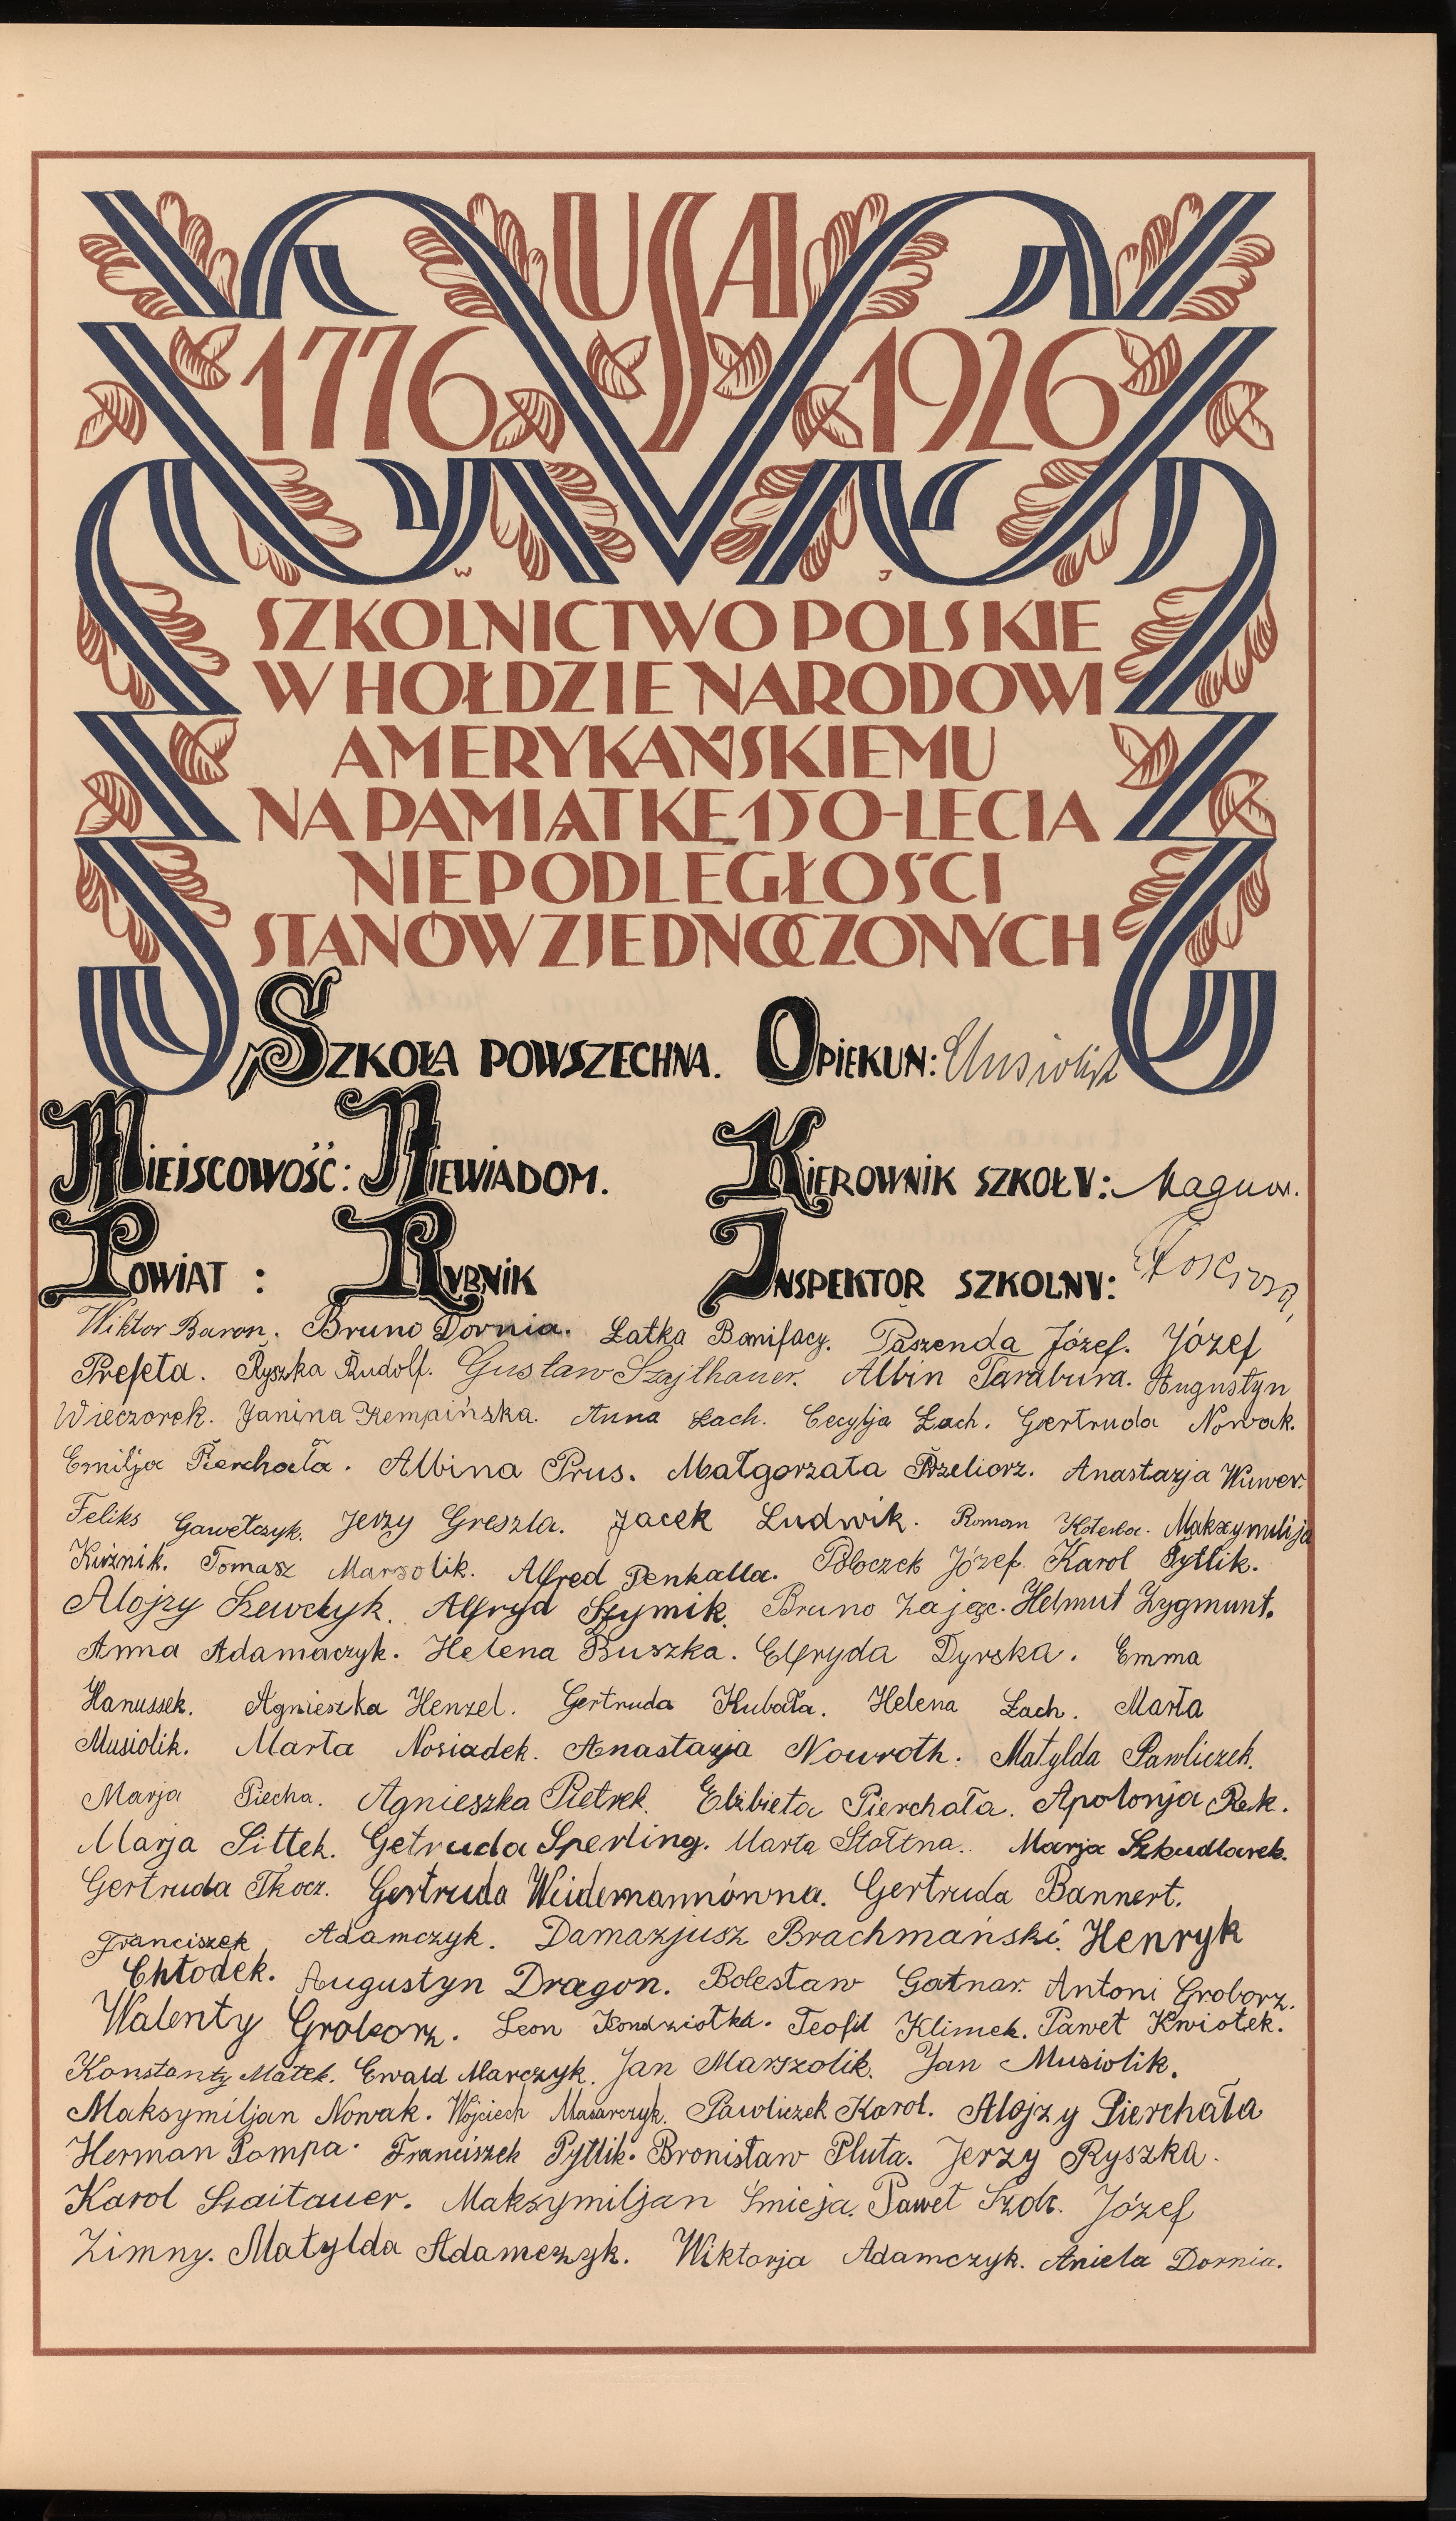 USA
1776 1926
W J
SZKOLNICTWO POLSKIE
W HOŁDZIE NARODOWI
AMERYKAŃSKIEMU
NA PAMIĄTKĘ 150-LECIA
NIEPODLEGŁOŚCI
STANÓW ZJEDNOCZONYCH
SZKOŁA POWSZECHNA. OPIEKUN: Musiolik
MIEJSCOWOŚĆ: NIEWIADOM. KIEROWNIK SZKOŁY:
POWIAT: RYBNIK INSPEKTOR SZKOLNY:
Wiktor Baron. Bruno Dornia. Łatka Bonifacy. Paszenda Józef. Józef
Prefeta. Ryszka Rudolf. Gustaw Szajthauer. Albin Tarabura. Augustyn
Wieczorek. Janina Kempińska. Anna Łach. Cecylja Łach. Gertruda Nowak.
Emilja Pierchała. Albina Prus. Małgorzata Przeliorz. Anastazja Wuwer.
Feliks Gawełczyk. Jerzy Greszta. Jacek Ludwik. Roman Koterba. Maksymilija
Kuźnik. Tomasz Marsolik. Alfred Penkalla. Potoczek Józef. Karol Pytlik.
Alojzy Szewczyk. Alfryd Szymik. Bruno Zając. Helmut Zygmunt.
Anna Adamaczyk. Helena Buszka. Elfryda Dyrska. Emma
Hanussek. Agnieszka Henzel. Gertruda Kubała. Helena Łach. Marta
Musiolik. Marta Nosiadek. Anastazja Nowroth. Matylda Pawliczek.
Marja Piecha. Agnieszka Pietrek. Elżbieta Pierchała. Apolonja Rek.
Marja Sittek. Getruda Sperling. Marta Stołtna. Marja Szkudlarek.
Gertruda Tkocz. Gertruda Weidemannówna. Gertruda Bannert.
Franciszek Adamczyk. Damazjusz Brachmański. Henryk
Chłodek. Augustyn Dragon. Bolesław Gatnar. Antoni Groborz.
Walenty Groborz. Leon Kondziołka. Teofil Klimek. Paweł Kwiotek.
Konstanty Małek. Ewald Marczyk. Jan Marszolik. Jan Musiolik.
Maksymiljan Nowak. Wojciech Masarczyk. Pawliczek Karol. Alojzy Pierchała
Herman Pompa. Franciszek Pytlik. Bronisław Pluta. Jerzy Ryszka.
Karol Szaitauer. Maksymiljan Śmieja. Paweł Józef
Zimny. Matylda Adamczyk. Wiktorja Adamczyk. Aniela Dornia.